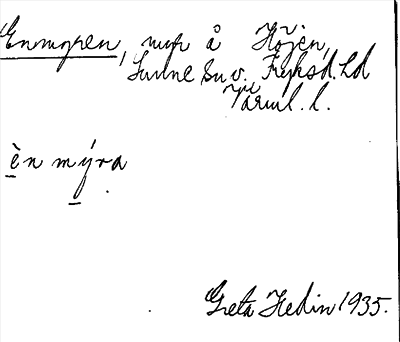 Enmyren, myr å Höjen,
Sunne sn v. Fryksd. hd
Värml. l.
èn mýra
Greta Hedin 1935.